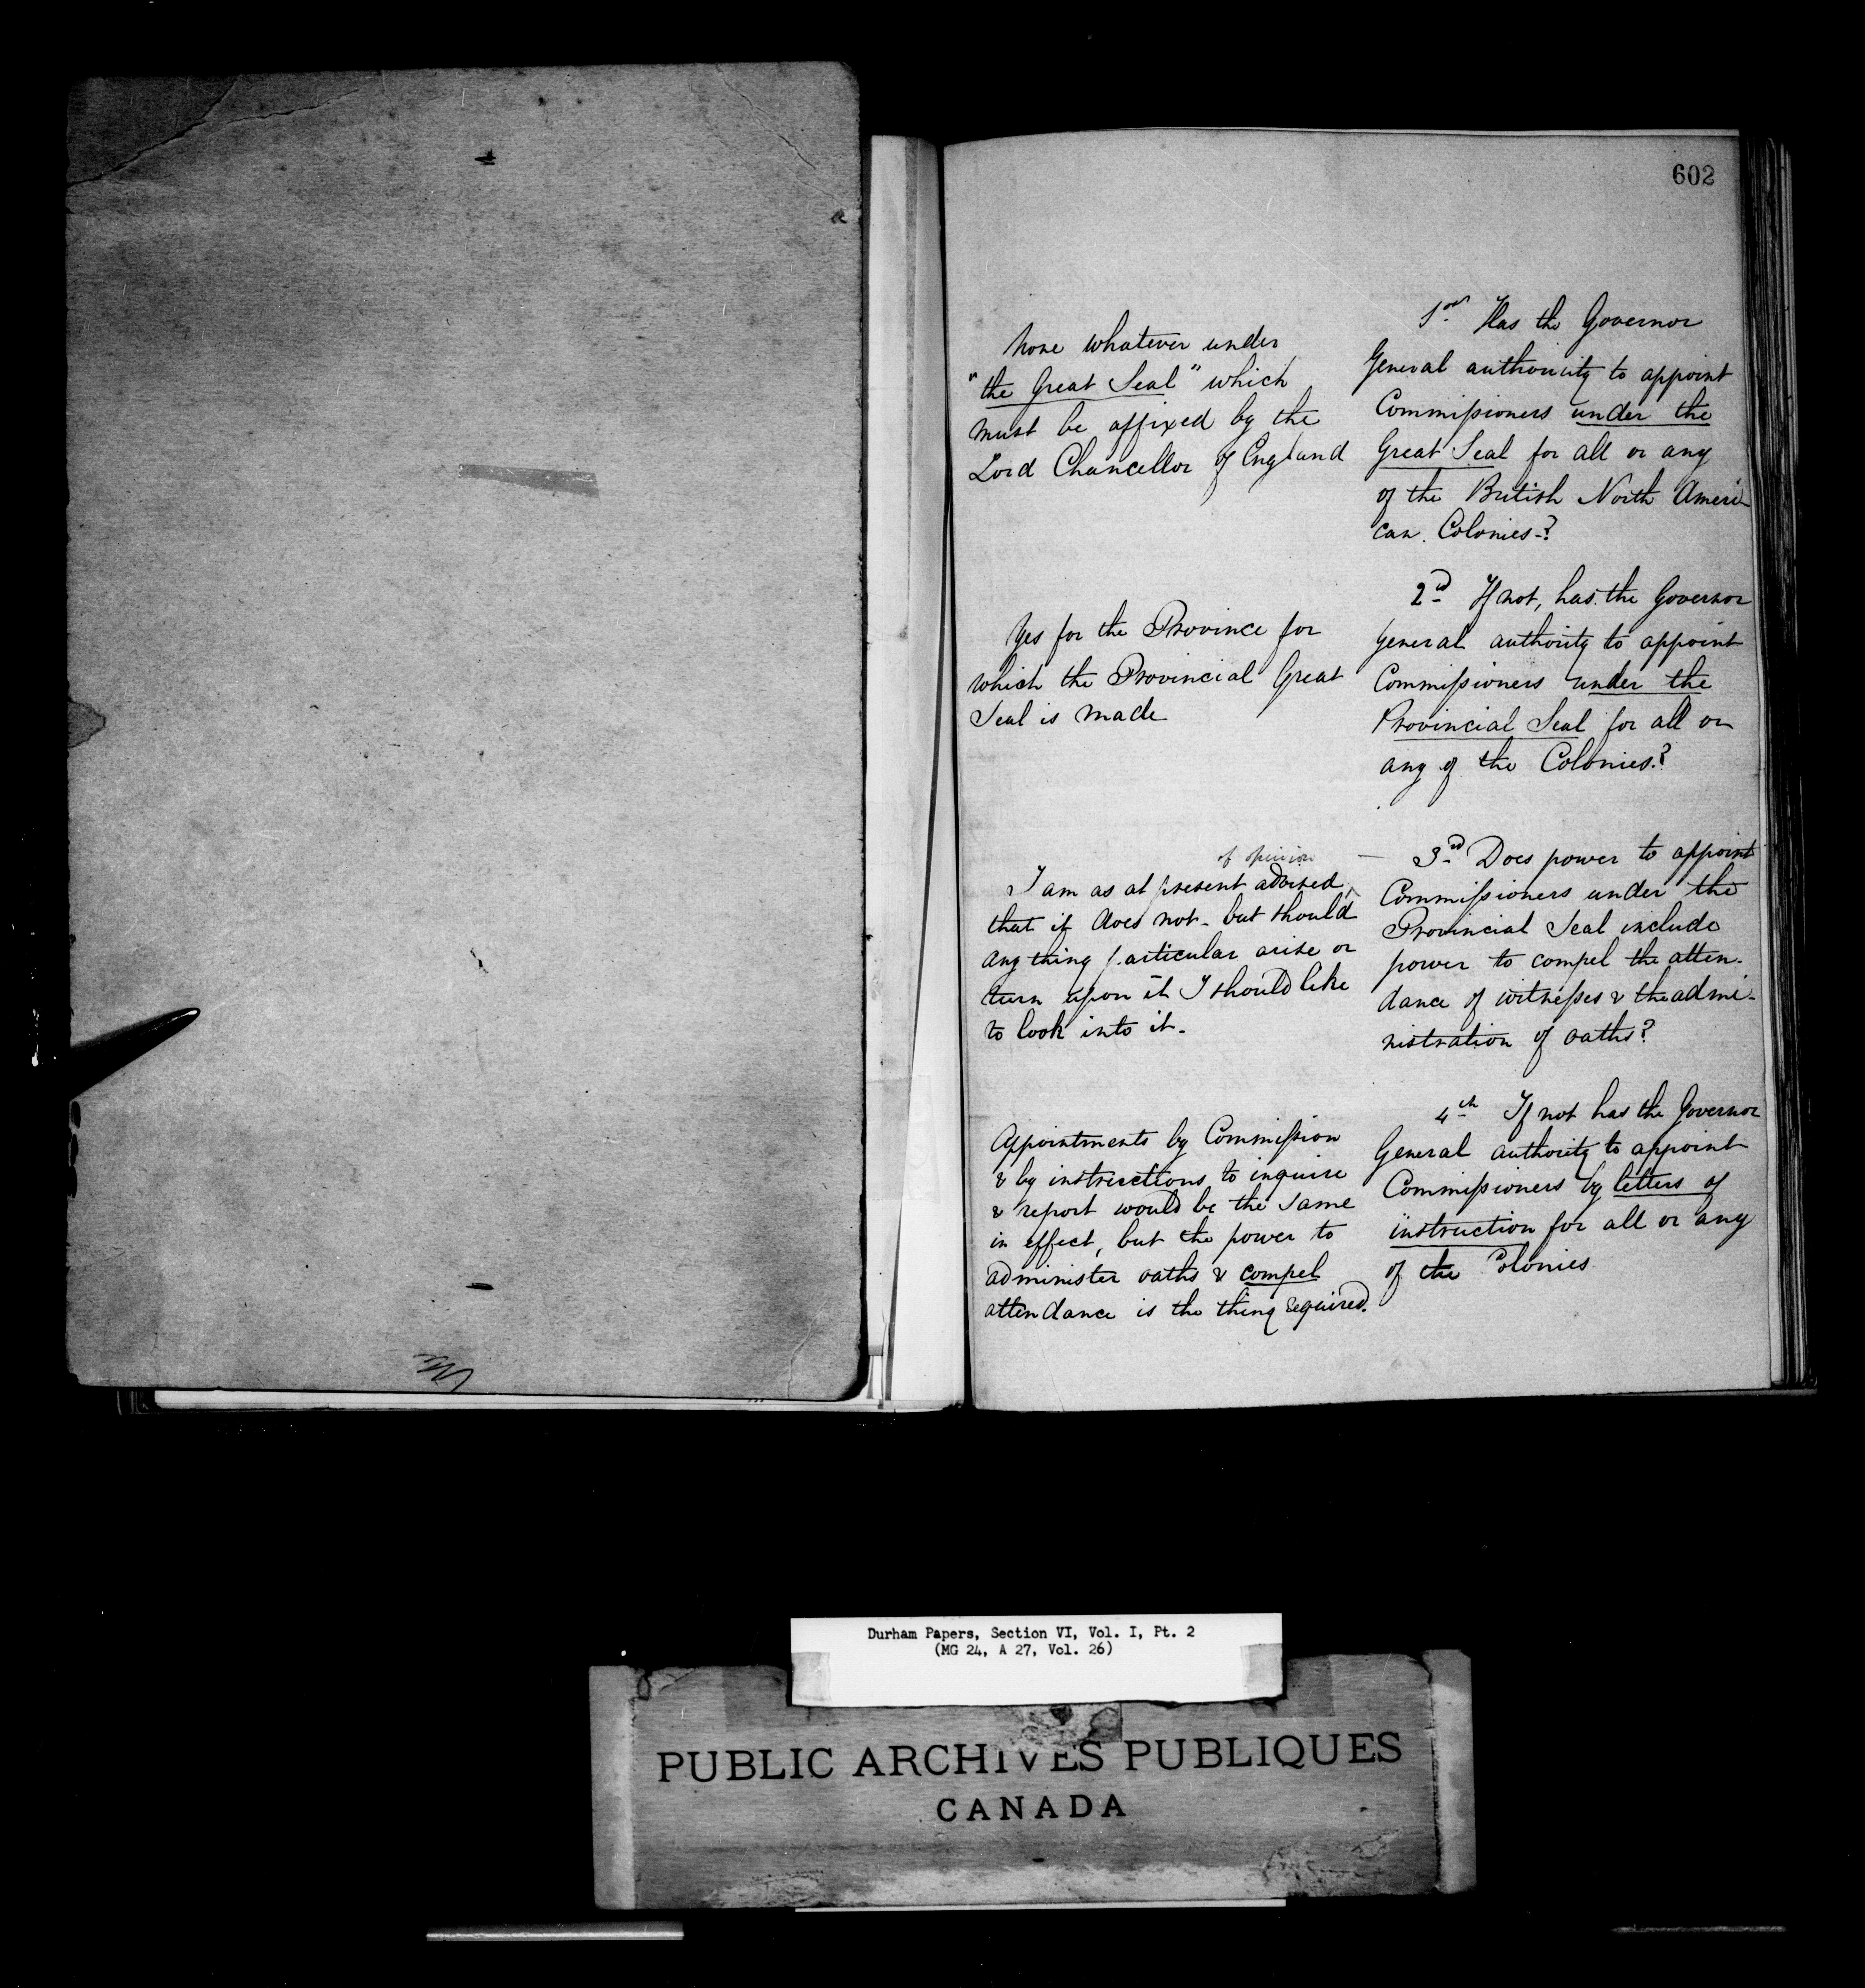 602
1st Has the Governor
General authority to appoint
Commissioners under the
Great Seal for all or any
of the British North Ameri-
can Colonies-?
None whatever under
"the Great Seal" which
must be affixed by the
Lord Chancellor of England
2nd If not, has the Governor
General authority to appoint
Commissioners under the
Provincial Seal for all or
any of the Colonies?
Yes for the Province for
which the Provincial Great
Seal is made
3rd Does power to appoint
Commissioners under the
Provincial Seal include
power to compel the atten-
dance of witnesses & the admi-
nistration of oaths?
of opinion
I am as at present advised
that it does not - but should
any thing particular arise or
turn upon it I should like
to look into it -
4th If not has the Governor
General authority to appoint
Commissioners by letters of
instruction for all or any
of the Colonies
Appointments by Commission
& by instructions to inquire
& report would be the same
in effect, but the power to
administer oaths & compel
attendance is the thing required.
Durham Papers, Section VI, Vol. I, Pt. 2
(MG 24, A 27, Vol. 26)
PUBLIC ARCHIVES PUBLIQUES
CANADA